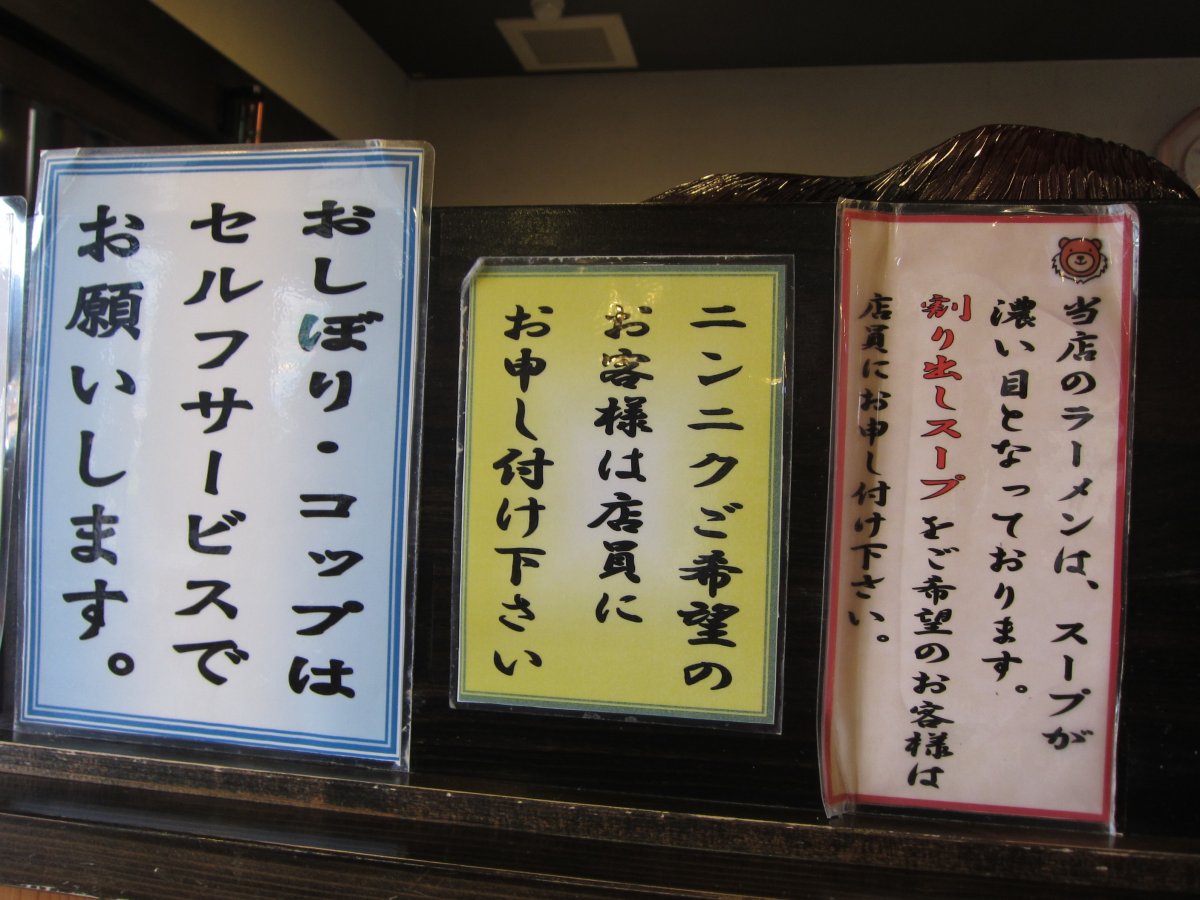 おしぼり・コップは
セルフサービスで
お願いします。
ニンニクご希望の
お客様は店員に
お申し付け下さい
当店のラーメンは、スープが
濃い目となっております。
割り出しスープをご希望のお客様は
店員にお申し付け下さい。